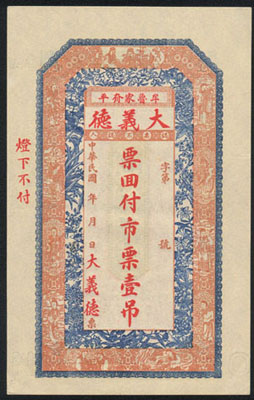 平介家會岸
大義德
字第　　號
票回付市票壹吊
中華民國　年　月　日大義德票
燈下不付